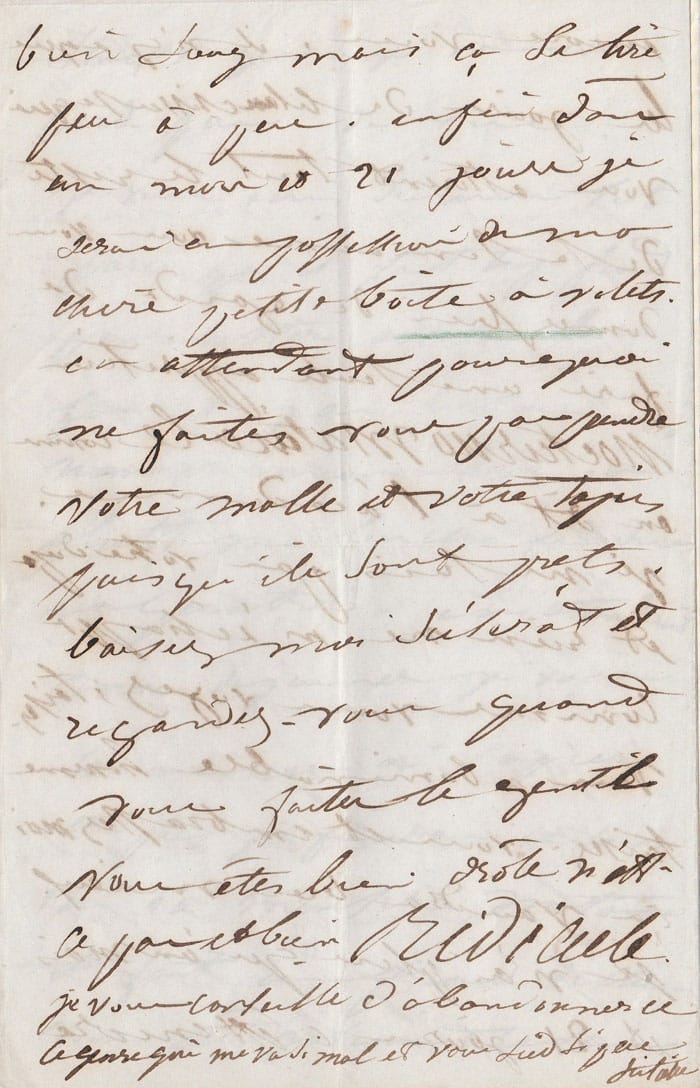 bien long mais ça se tire
peu à peu. enfin dans
un mois et 21 jours je
serai en possession de ma
chère petite boîte à volets.
en attendant pourquoi
ne faites vous pas prendre
votre malle et votre tapis
puisqu'ils sont prets.
baisez moi scélérat et
regardez-vous quand
vous faites le gentil
vous êtes bien drôle n'est-
ce pas et bien Ridicule.
je vous conseille d'abandonner ce
genre qui me va si mal et vous sied si peu